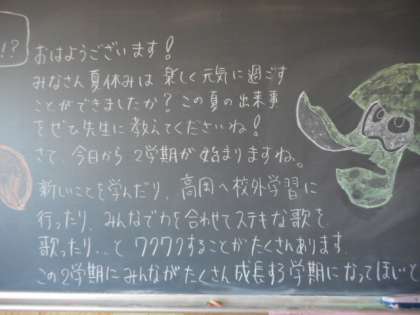 !?
おはようございます!
みなさん夏休みは楽しく元気に過ごす
ことができましたか?この夏の出来事
をぜひ先生に教えてくださいね!
さて、今日から2学期が始まりますね。
新しいことを学んだり、高岡へ校外学習に
行ったり、みんなで力を合わせてステキな歌を
歌ったり…とワクワクすることがたくさんあります.
この2学期にみんながたくさん成長する学期になってほしいと